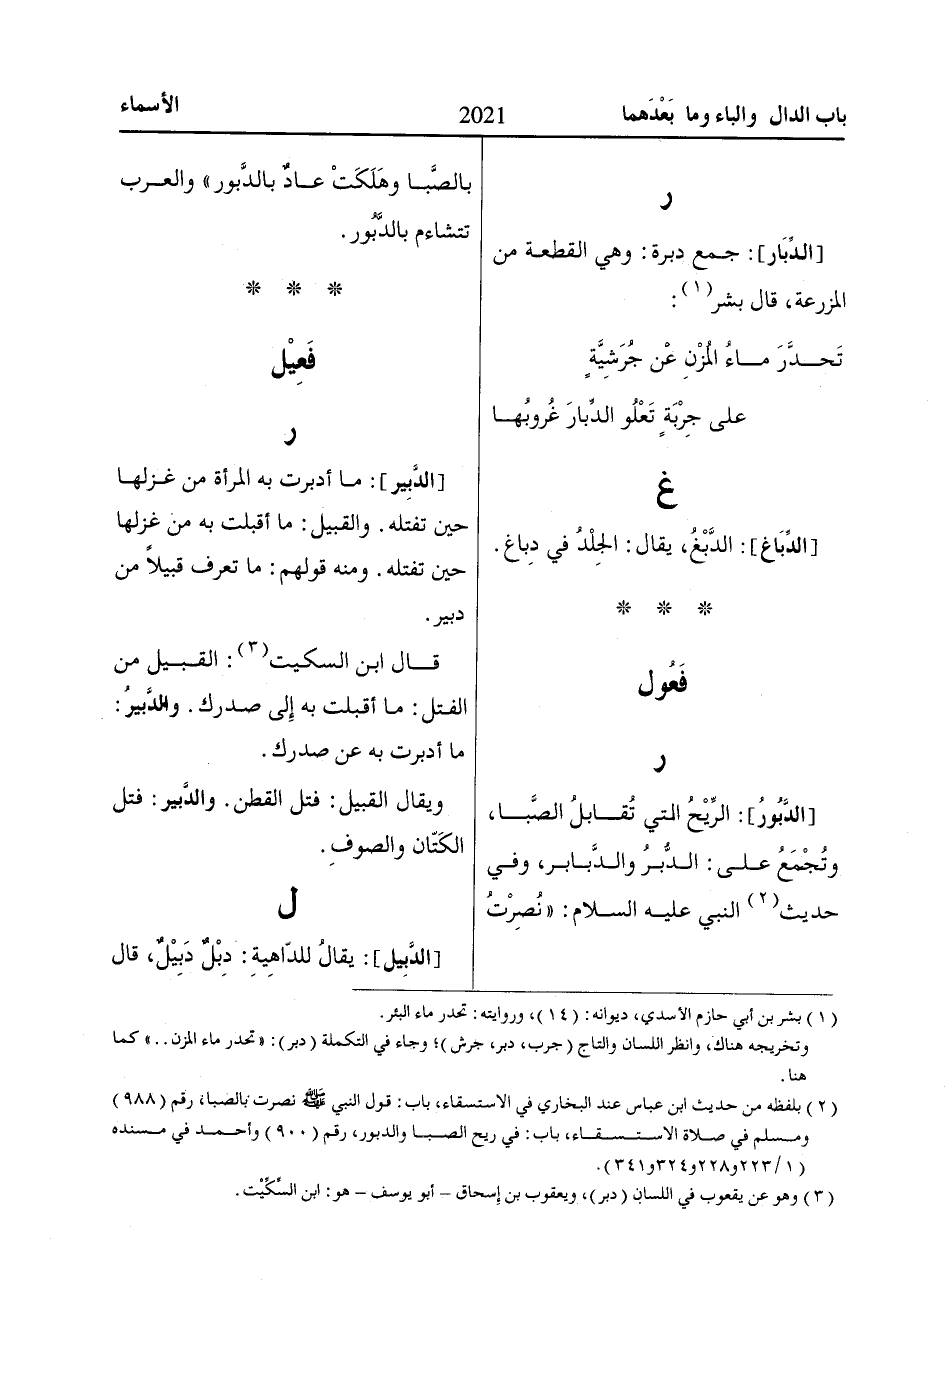 باب الدال والباء وما بَعْدَهما
2021
الأسماء
ر
[الدِّبَار]: جـمع دبرة: وهي القطعة من
المزرعة، قال بشر(١):
تَحـدَّرَ مـاءُ المُزْنِ عْن جُرَشيَّةٍ
على جِرْبَةٍ تَعْلُو الدِّبارَ غُروبُهـا
غ
[الدِّبَاغ]: الدَّبْغُ، يقال: الجِلْدُ في دباغ.
* * *
فَعُول
ر
[الدَّبُورُ]: الرِّيْحُ التي تُقـابلُ الصَّبـا،
وتُجْمَعُ علـى: الدُّبُرُ والدَّبـابر، وفـي
حديث(٢) النبي عليـه السـلام: «نُصِرْتُ
بالصَّبـا وهَلَكَتْ عـادٌ بالدَّبور» والعـرب
تتشاءم بالدَّبُور.
* * *
فَعِيْل
ر
[الدَّبِير]: مـا أدبرت به المرأة من غـزلهـا
حين تفتله. والقبيل: ما أقبلت به من غزلها
حين تفتله. ومنه قولهم: ما تعرف قبيلاً من
دبير.
قـال ابن السكيت(٣): القـبـيل من
الفتل: مـا أقبلت به إلى صـدرك. والدَّبيرُ:
ما أدبرت به عن صدرك.
ويقال القبيل: فتل القطن. والدَّبير: فتل
الكَتّان والصوفِ.
ل
[الدَّبِيل]: يقالُ للدّاهية: دِبْلٌ دَبِيْلٌ، قال
(١) بشر بن أبي حازم الأسدي، ديوانه: (١٤)، وروايته: تحدر ماء البئر.
وتخريجه هناك، وانظر اللسان والتاج (جرب، دبر، جرش)؛ وجاء في التكملة (دبر): «تحدر ماء المزن..» كما
هنا.
(٢) بلفظه من حديث ابن عباس عند البخاري في الاستسقاء، باب: قول النبي ﷺ نصرت بالصبا، رقم (٩٨٨)
ومسلم في صلاة الاستسقاء، باب: في ريح الصبا والدبور، رقم (٩٠٠) وأحمد في مسنده
(١/٢٢٣و٢٢٨و٣٢٤و٣٤١).
(٣) وهو عن يقعوب في اللسان (دبر)، ويعقوب بن إسحاق – أبو يوسف – هو: ابن السِّكِّيْت.